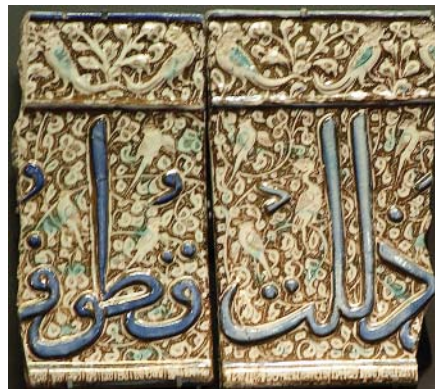 ذللت قطوف